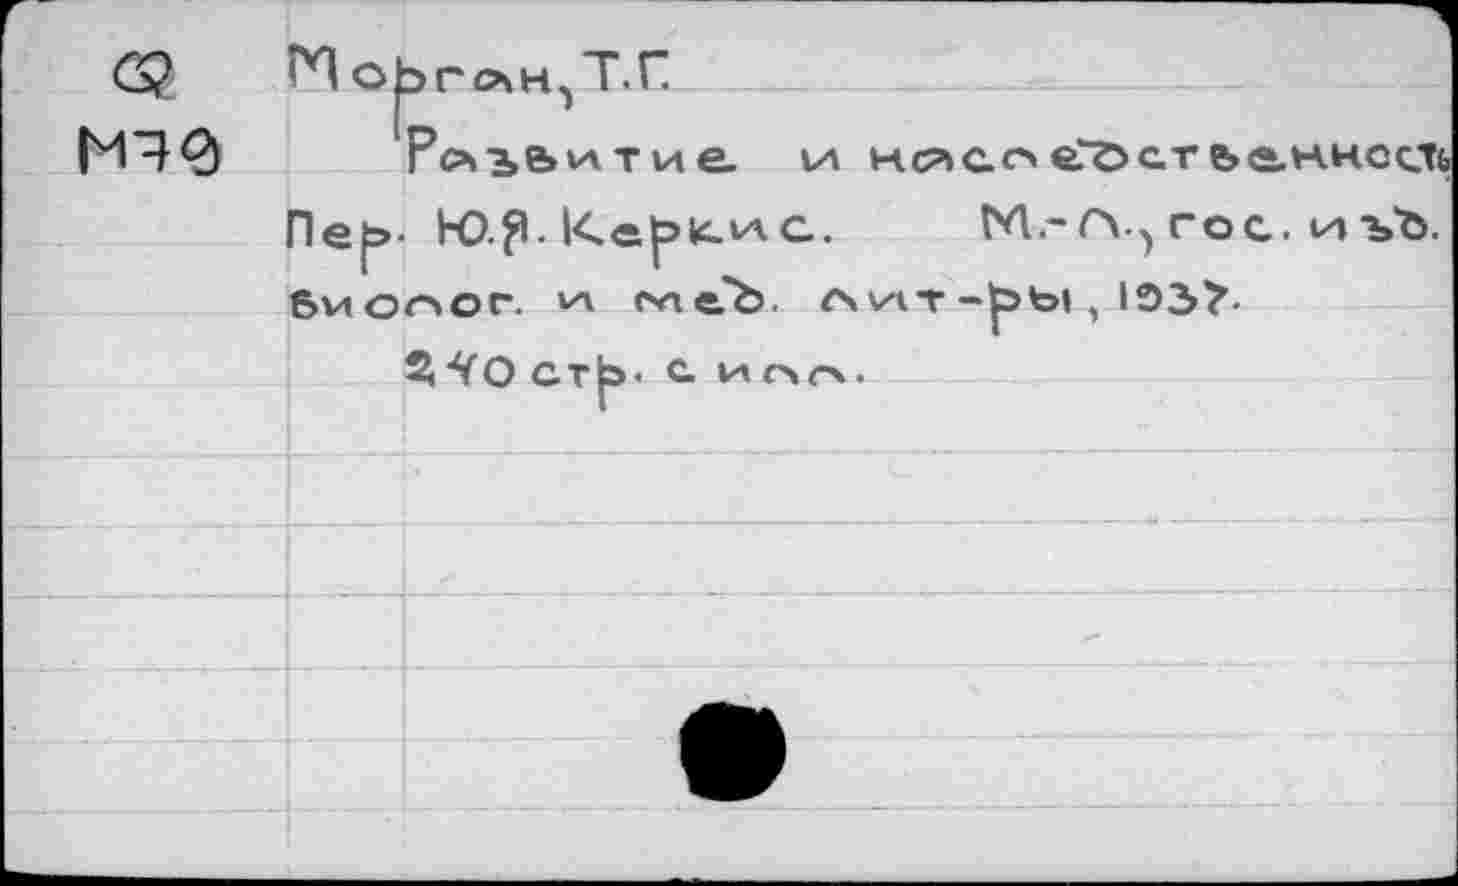 Морган, Т.Г.
М79 Развитие и наследственность
Пер. Ю.Я. Керкис. М.-Л., гос. изд.
биолог. и мед. лит-ры, 1937.
240 стр. с илл.